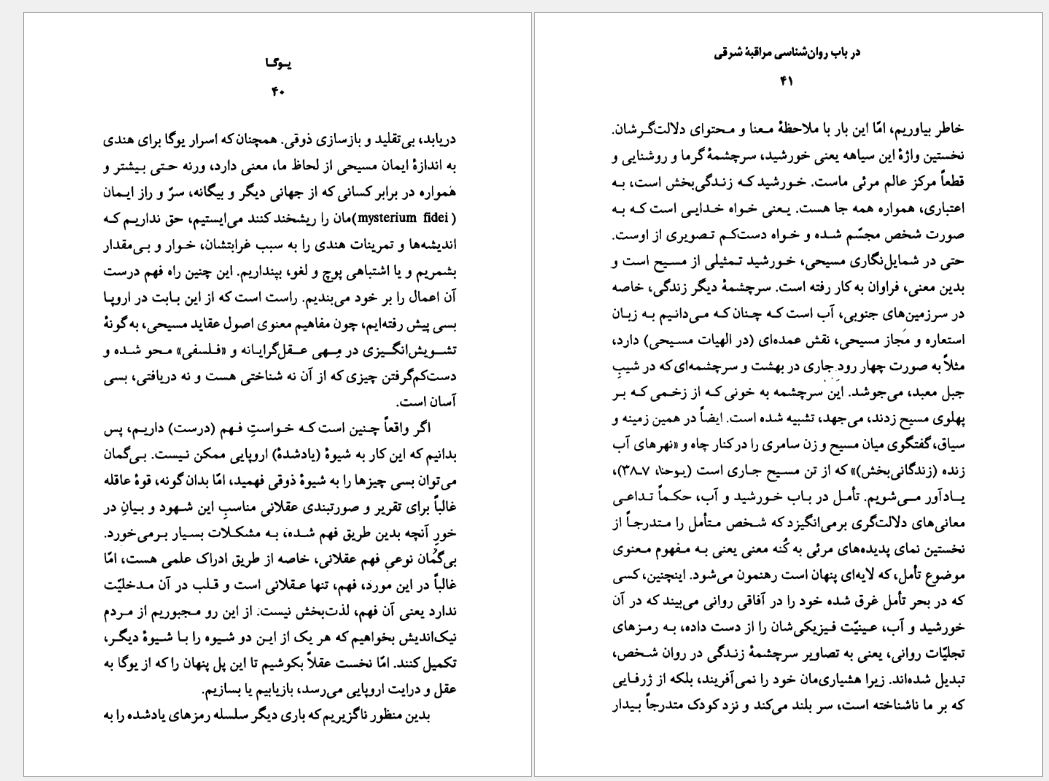 یـوگـا
۴۰
دریابد، بی‌تقلید و بازسازی ذوقی. همچنان که اسرار یوگا برای هندی
به اندازهٔ ایمان مسیحی از لحاظ ما، معنی دارد، ورنه حتی بیشتر و
همواره در برابر کسانی که از جهانی دیگر و بیگانه، سرّ و راز ایمان
(mysterium fidei)مان را ریشخند کنند می‌ایستیم، حق نداریم که
اندیشه‌ها و تمرینات هندی را به سبب غرابتشان، خوار و بی‌مقدار
بشمریم و یا اشتباهی پوچ و لغو، بپنداریم. این چنین راه فهم درست
آن اعمال را بر خود می‌بندیم. راست است که از این بابت در اروپا
بسی پیش رفته‌ایم، چون مفاهیم معنوی اصول عقاید مسیحی، به گونهٔ
تشویش‌انگیزی در مِهی عقل‌گرایانه و «فلسفی» محو شده و
دست‌کم‌گرفتن چیزی که از آن نه شناختی هست و نه دریافتی، بسی
آسان است.
اگر واقعاً چنین است که خواستِ فهم (درست) داریم، پس
بدانیم که این کار به شیوهٔ (یادشدهٔ) اروپایی ممکن نیست. بی‌گمان
می‌توان بسی چیزها را به شیوهٔ ذوقی فهمید، امّا بدان گونه، قوهٔ عاقله
غالباً برای تقریر و صورتبندی عقلانی مناسبِ این شهود و بیانِ در
خورِ آنچه بدین طریق فهم شده، به مشکلات بسیار برمی‌خورد.
بی‌گمان نوعی فهم عقلانی، خاصه از طریق ادراک علمی هست، امّا
غالباً در این مورد، فهم، تنها عقلانی است و قلب در آن مدخلیّت
ندارد یعنی آن فهم، لذت‌بخش نیست. از این رو مجبوریم از مردم
نیک‌اندیش بخواهیم که هر یک از این دو شیوه را با شیوهٔ دیگر،
تکمیل کنند. امّا نخست عقلاً بکوشیم تا این پل پنهان را که از یوگا به
عقل و درایت اروپایی می‌رسد، بازیابیم یا بسازیم.
بدین منظور ناگزیریم که باری دیگر سلسله رمزهای یادشده را به
در باب روان‌شناسی مراقبهٔ شرقی
۴۱
خاطر بیاوریم، امّا این بار با ملاحظهٔ معنا و محتوای دلالت‌گرشان.
نخستین واژهٔ این سیاهه یعنی خورشید، سرچشمهٔ گرما و روشنایی و
قطعاً مرکز عالم مرئی ماست. خورشید که زندگی‌بخش است، به
اعتباری، همواره همه جا هست. یعنی خواه خدایی است که به
صورت شخص مجسّم شده و خواه دست‌کم تصویری از اوست.
حتی در شمایل‌نگاری مسیحی، خورشید تمثیلی از مسیح است و
بدین معنی، فراوان به کار رفته است. سرچشمهٔ دیگر زندگی، خاصه
در سرزمین‌های جنوبی، آب است که چنان که می‌دانیم به زبان
استعاره و مَجاز مسیحی، نقش عمده‌ای (در الهیات مسیحی) دارد،
مثلاً به صورت چهار رود جاری در بهشت و سرچشمه‌ای که در شیبِ
جبل معبد، می‌جوشد. این سرچشمه به خونی که از زخمی که بر
پهلوی مسیح زدند، می‌جهد، تشبیه شده است. ایضاً در همین زمینه و
سیاق، گفتگوی میان مسیح و زن سامری را در کنار چاه و «نهرهای آب
زنده (زندگانی‌بخش)» که از تن مسیح جاری است (یوحنا، ۷ـ۳۸)،
یادآور می‌شویم. تأمل در باب خورشید و آب، حکماً تداعی
معانی‌های دلالت‌گری برمی‌انگیزد که شخص متأمل را متدرجاً از
نخستین نمای پدیده‌های مرئی به کُنه معنی یعنی به مفهوم معنوی
موضوع تأمل، که لایه‌ای پنهان است رهنمون می‌شود. اینچنین، کسی
که در بحر تأمل غرق شده خود را در آفاقی روانی می‌بیند که در آن
خورشید و آب، عینیّت فیزیکی‌شان را از دست داده، به رمزهای
تجلیّات روانی، یعنی به تصاویر سرچشمهٔ زندگی در روان شخص،
تبدیل شده‌اند. زیرا هشیاری‌مان خود را نمی‌آفریند، بلکه از ژرفایی
که بر ما ناشناخته است، سر بلند می‌کند و نزد کودک متدرجاً بیدار